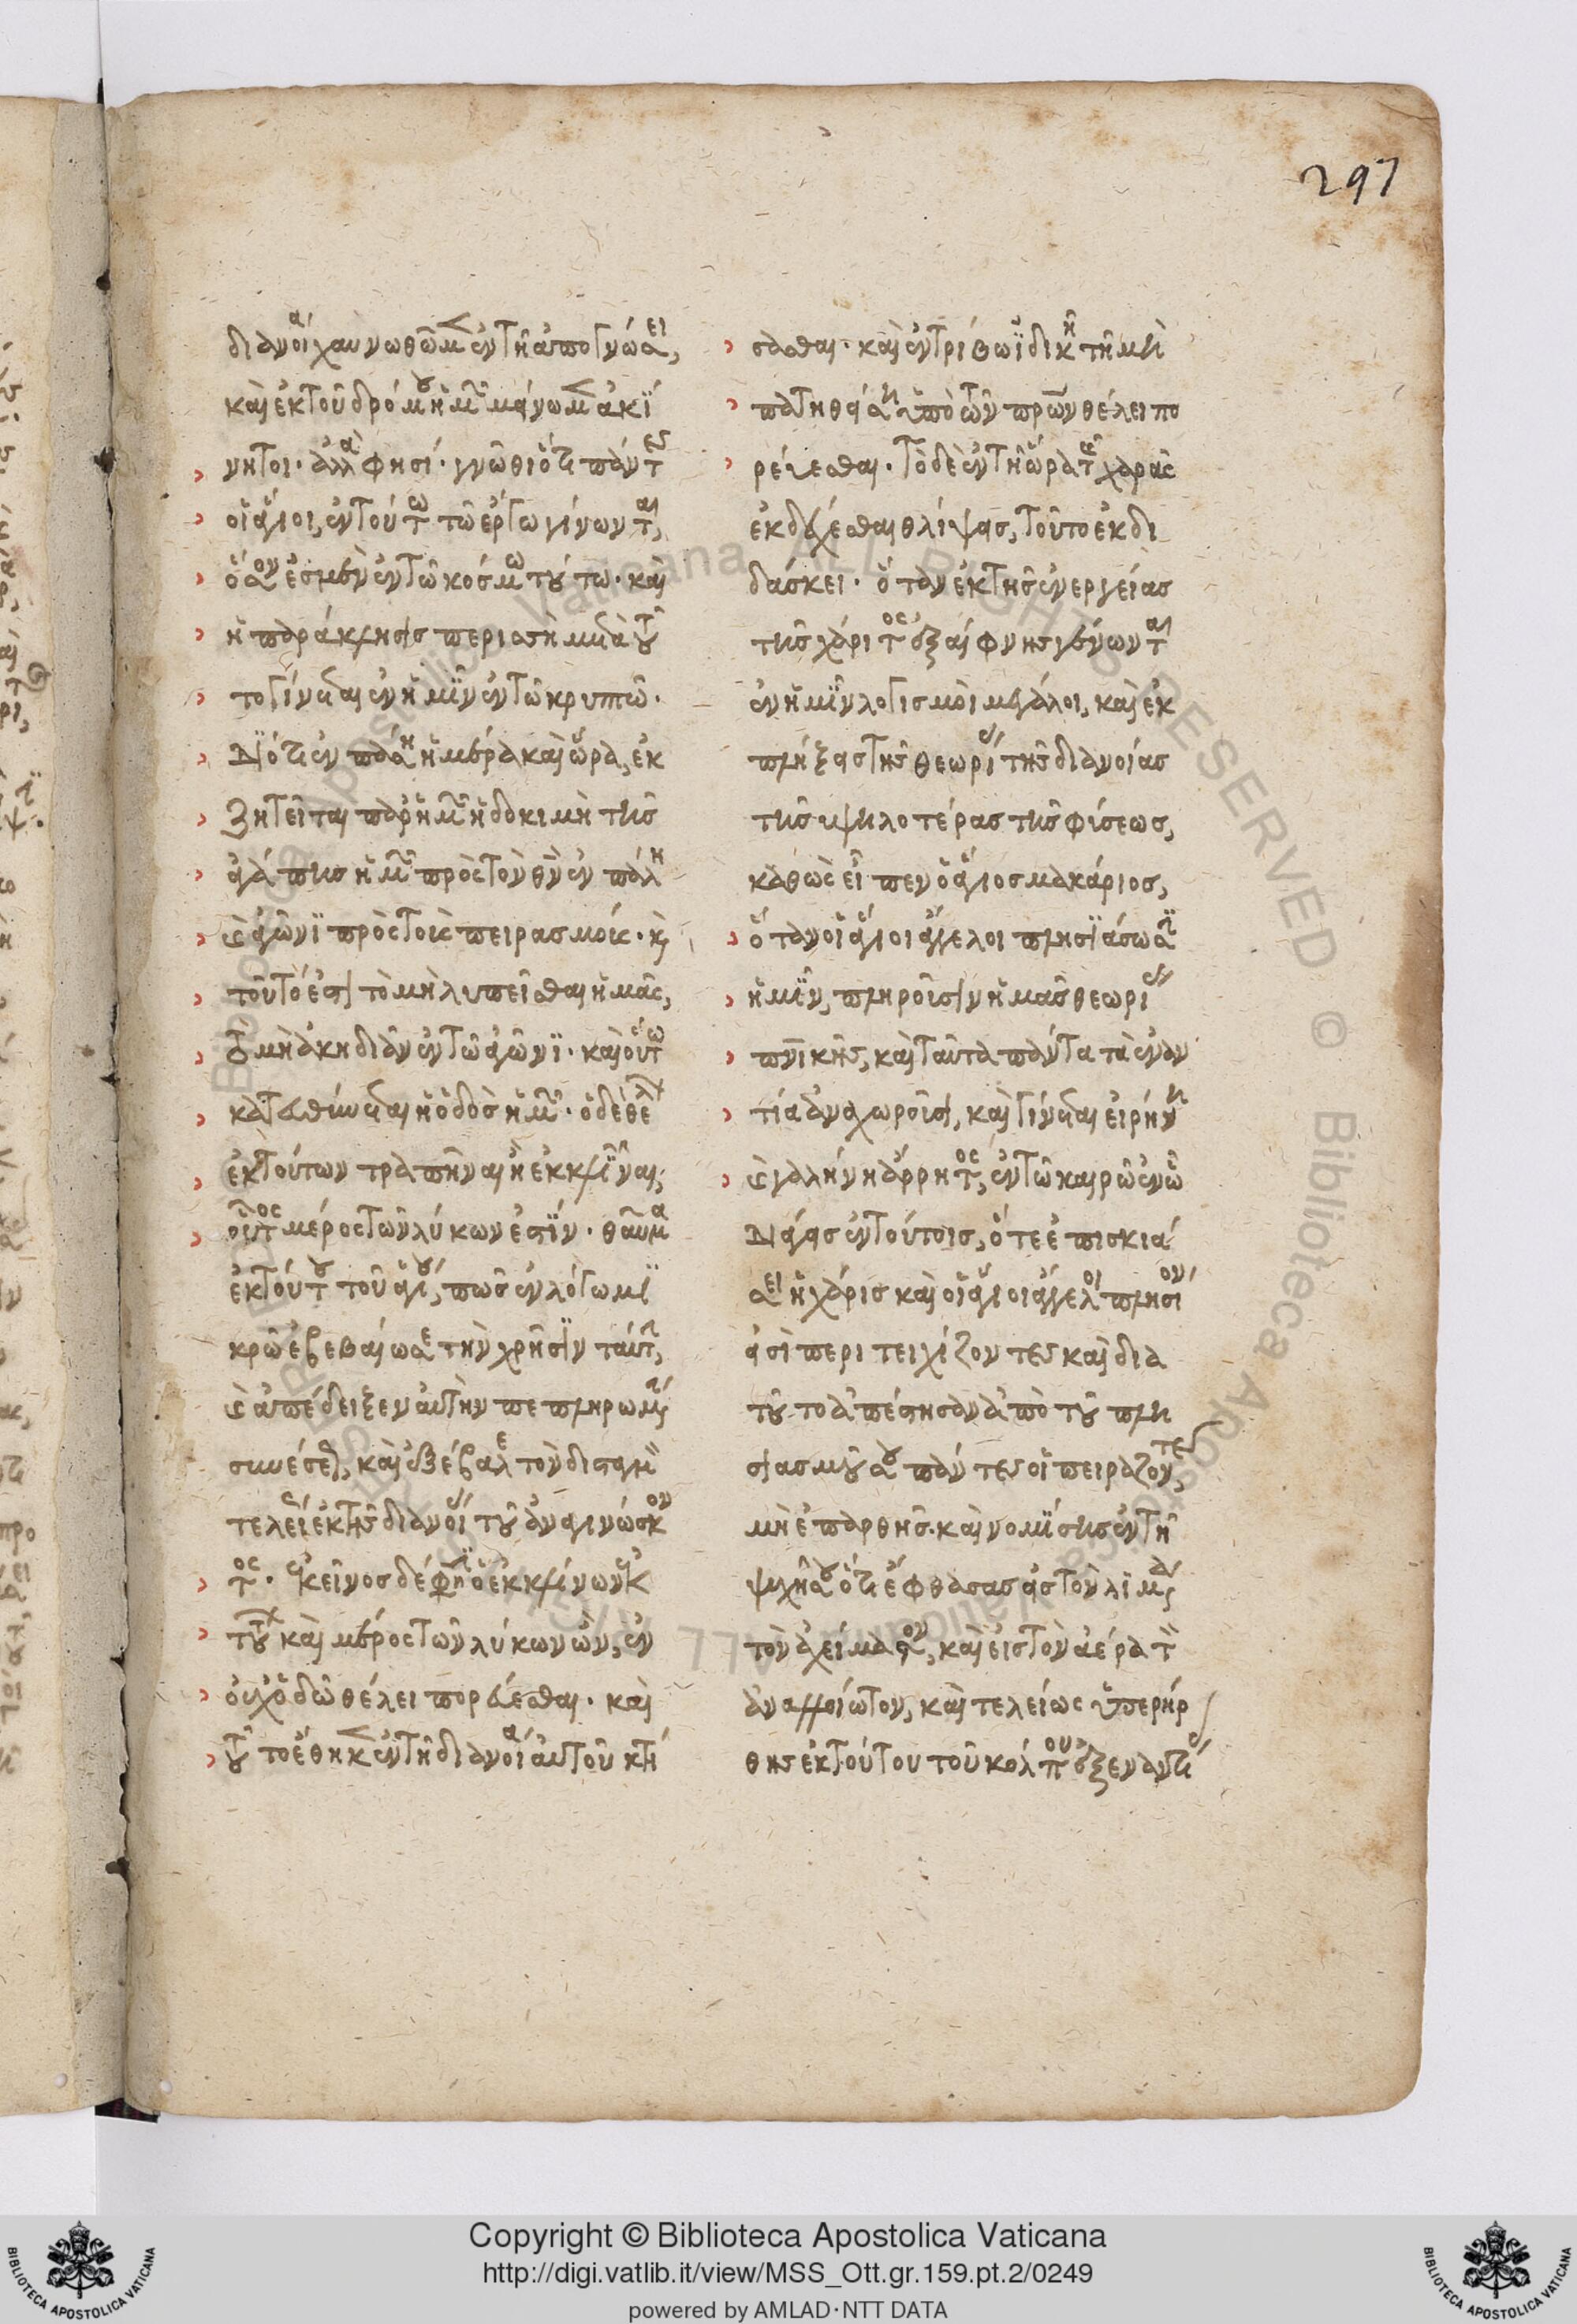 297
διανοία χαυνωθῶμεν ἐν τῇ ἀπογνώσει,
καὶ ἐκ τοῦ δρόμου ἡμῶν μείνωμεν ἀκί
νητοι· ἀλλὰ φησί· γνῶθι ὅτι πάντες
οἱ ἅγιοι, ἐν τούτω τῶ ἔργω γίνονται,
ὅσον ἐσμὲν ἐν τῶ κόσμω τούτω· καὶ
ἡ παράκλησις περισσὴ μετὰ τού
το γίνεται ἐν ἡμῖν ἐν τῶ κρυπτῶ·
διότι ἐν πάση ἡμέρα καὶ ὥρα, ἐκ
ζητεῖται παρ' ἡμῶν ἡ δοκιμὴ τῆς
ἀγάπης ἡμῶν πρὸς τὸν θν ἐν πάλη
καὶ ἀγῶνι πρὸς τοὺς πειρασμούς· καὶ
τοῦτό ἐστι τὸ μὴ λυπεῖσθαι ἡμᾶς,
καὶ μὴ ἀκηδιᾶν ἐν τῶ ἀγῶνι· καὶ οὕτω
κατευθύνεται ἡ ὁδὸς ἡμῶν· ὁ δὲ θέλων
ἐκ τούτων τραπῆναι ἢ ἐκκλῖναι,
οὗτος μέρος τῶν λύκων ἐστίν· θαῦμα
ἐκ τούτου τοῦ ἁγίου, πῶς ἐν λόγω μι
κρῶ ἐβεβαίωσε τὴν χρῆσιν ταύτην,
καὶ ἀπέδειξεν αὐτὴν πεπληρωμένην
συνέσεως, καὶ ἐξέβαλε τὸν δισταγμὸν
τελείως ἐκ τῆς διανοίας τοῦ ἀναγινώσκον
τος· ἐκεῖνος δέ φησιν ὁ ἐκκλίνων ἐκ
τούτων καὶ μέρος τῶν λύκων ὢν, ἐν
οὐχ ὁδῶ θέλει πορεύεσθαι· καὶ
τοῦτο ἔθηκεν ἐν τῇ διανοία αὐτοῦ κτή
σασθαι· καὶ ἐν τρίβω ἰδικῇ τῇ μὴ
πατηθείση ὑπὸ τῶν πρων θέλει πο
ρεύεσθαι· τὸ δὲ ἐν τῇ ὥρα τῆς χαρᾶς
ἐκδέχεσθαι θλίψεις, τοῦτο ἐκδι
δάσκει· ὅταν ἐκ τῆς ἐνεργείας
τῆς χάριτος ἐξαίφνης γένωνται
ἐν ἡμῖν λογισμοὶ μεγάλοι, καὶ ἐκ
πλήξεις τῆς θεωρίας τῆς διανοίας
τῆς ὑψηλοτέρας τῆς φύσεως,
καθὼς εἶπεν ὁ ἅγιος μακάριος,
ὅταν οἱ ἅγιοι ἄγγελοι πλησιάσωσιν
ἡμῖν, πληροῦσιν ἡμᾶς θεωρίας
πνικῆς, καὶ ταῦτα πάντα τὰ ἐναν
τία ἀναχωροῦσι, καὶ γίνεται εἰρήνη
καὶ γαλήνη ἄρρητος, ἐν τῶ καιρῶ ἐν ὧ
διάγεις ἐν τούτοις, ὅτε ἐπισκιά
σει ἡ χάρις καὶ οἱ ἅγιοι ἄγγελοι πλησίον
εἰσὶ περιτειχίζοντες καὶ διὰ
τοῦτο ἀπέστησαν ἀπὸ τοῦ πλη
σιασμοῦ σου πάντες οἱ πειράζοντες,
μὴ ἐπαρθῇς· καὶ νομίσης ἐν τῇ
ψυχῇ σου ὅτι ἔφθασας εἰς τὸν λιμένα
τὸν ἀχείμαστον, καὶ εἰς τὸν ἀέρα τὸν
ἀναλλοίωτον, καὶ τελείως ὑπερήρ
θης ἐκ τούτου τοῦ κόλπου ἐξ ἐναντίας
Copyright © Biblioteca Apostolica Vaticana
http://digi.vatlib.it/view/MSS_Ott.gr.159.pt.2/0249
powered by AMLAD·NTT DATA
BIBLIOTECA APOSTOLICA VATICANA
BIBLIOTECA APOSTOLICA VATICANA